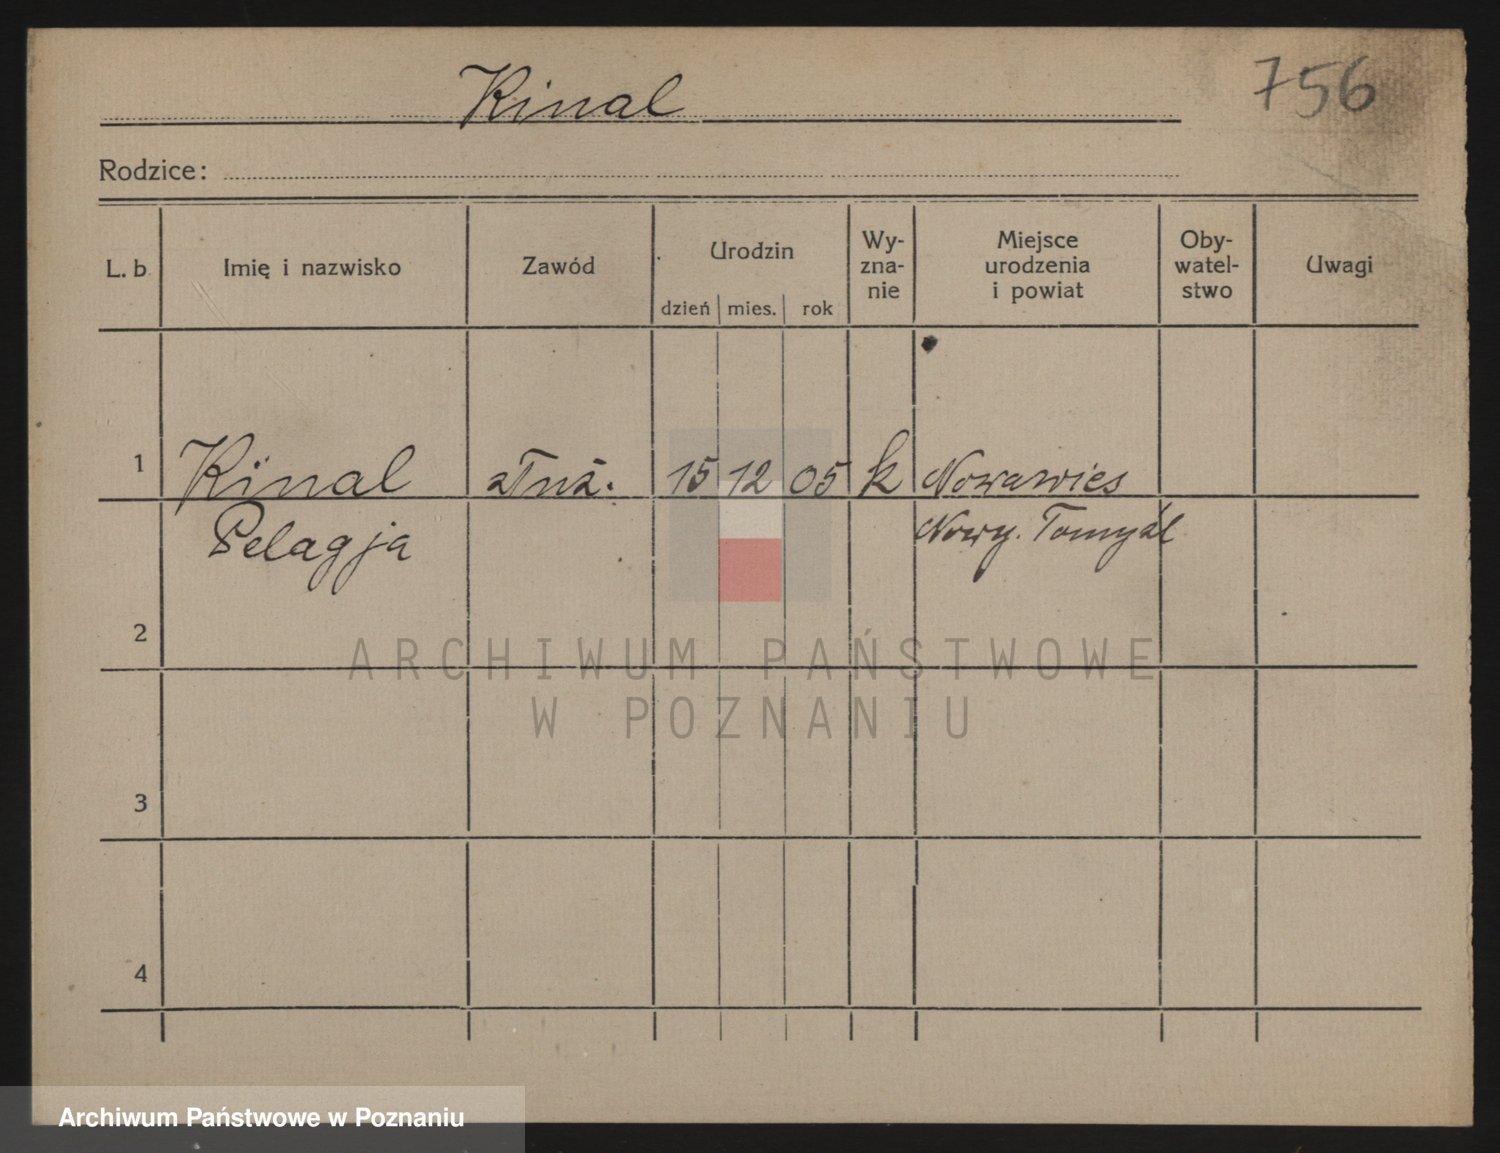 Kinal
756
Rodzice:
L. b. Imię i nazwisko Zawód Urodzin dzień mies. rok Wy-zna-nie Miejsce urodzenia i powiat Oby-watel-stwo Uwagi
1 Kinal służ. 15 12 05 k Nowawies
Pelagja Nowy. Tomyśl
2
3
4
ARCHIWUM PAŃSTWOWE
W POZNANIU
Archiwum Państwowe w Poznaniu